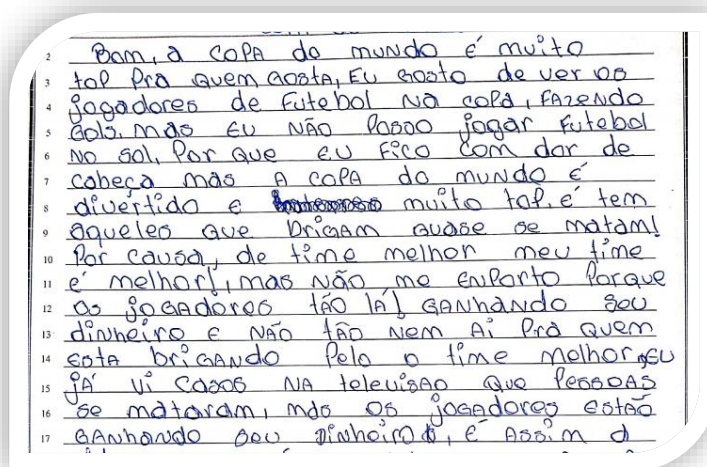 2 Bom, a COPA do mundo é muito
3 top Pra Quem GOStA, EU GOSto de ver os
4 jogadores de Futebol NA copa, FAZENDO
5 Gols. mas EU NÃO Posso jogar Futebol
6 NO sol, Por que EU Fico com dor de
7 cabeça mas A COPA do mundo É
8 divertido e muito top. é tem
9 aqueles que brigam quase se matam!
10 Por causa, de time melhor meu time
11 é melhor!, mas Não me ENPorto Porque
12 os joGAdores tÃO lÁ! GANhANdo seu
13 dinheiro E NÃO tÃO NEM Ai Pra Quem
14 EStA briGANdo Pelo o time melhor, EU
15 JÁ vi casos NA televisAo Que PessoAs
16 se mataram, mas os joGAdores estão
17 GANhando seu DiNheiro, É Assim a